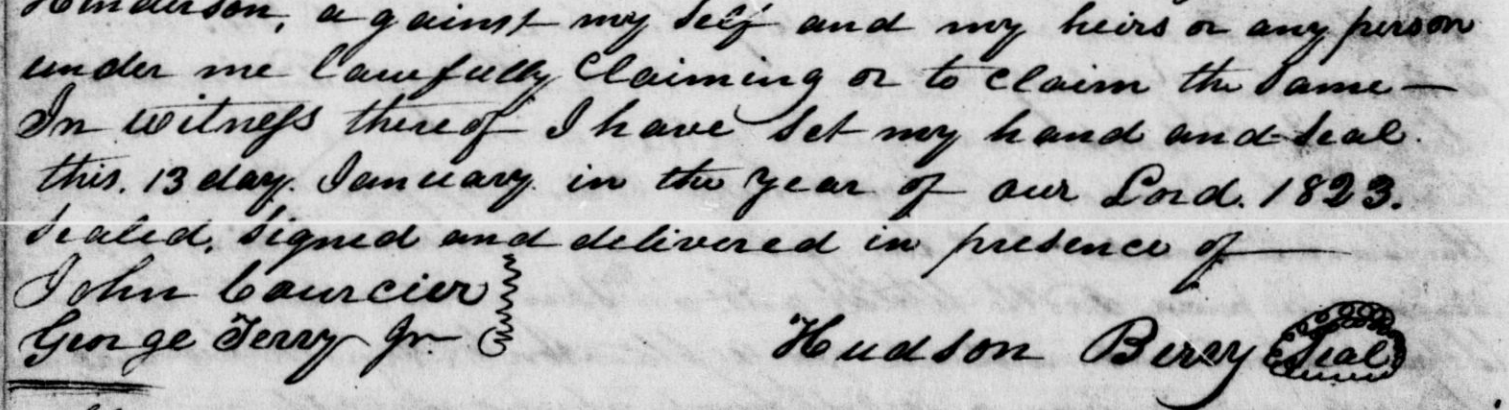 Henderson, against my self and my heirs or any person
under me lawfully Claiming or to claim the same —
In witness thereof I have set my hand and seal.
this. 13 day. January. in the year of our Lord. 1823.
Sealed, signed and delivered in presence of
John Courcier
George Terry Jr
Hudson Berry Seal